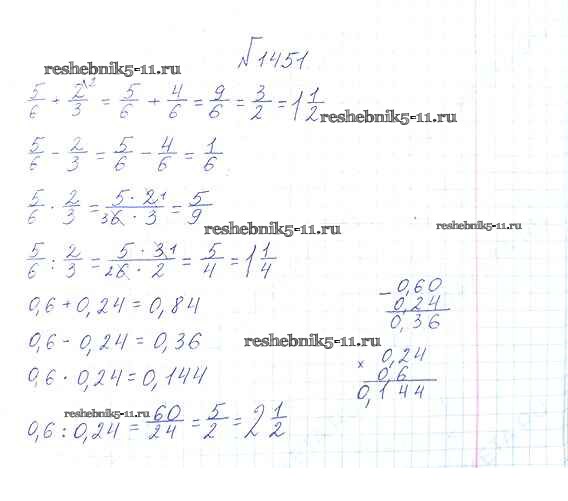 №1451
reshebnik5-11.ru
5/6 + 2/3\2 = 5/6 + 4/6 = 9/6 = 3/2 = 1 1/2
reshebnik5-11.ru
5/6 - 2/3 = 5/6 - 4/6 = 1/6
5/6 · 2/3 = 5 · 2 1 / 3 6 · 3 = 5/9
reshebnik5-11.ru
reshebnik5-11.ru
5/6 : 2/3 = 5 · 3 1 / 2 6 · 2 = 5/4 = 1 1/4
0,6 + 0,24 = 0,84
0,6 - 0,24 = 0,36
reshebnik5-11.ru
0,6 · 0,24 = 0,144
reshebnik5-11.ru
0,6 : 0,24 = 60/24 = 5/2 = 2 1/2
- 0,60
0,24
0,36
× 0,24
0,6
0,144